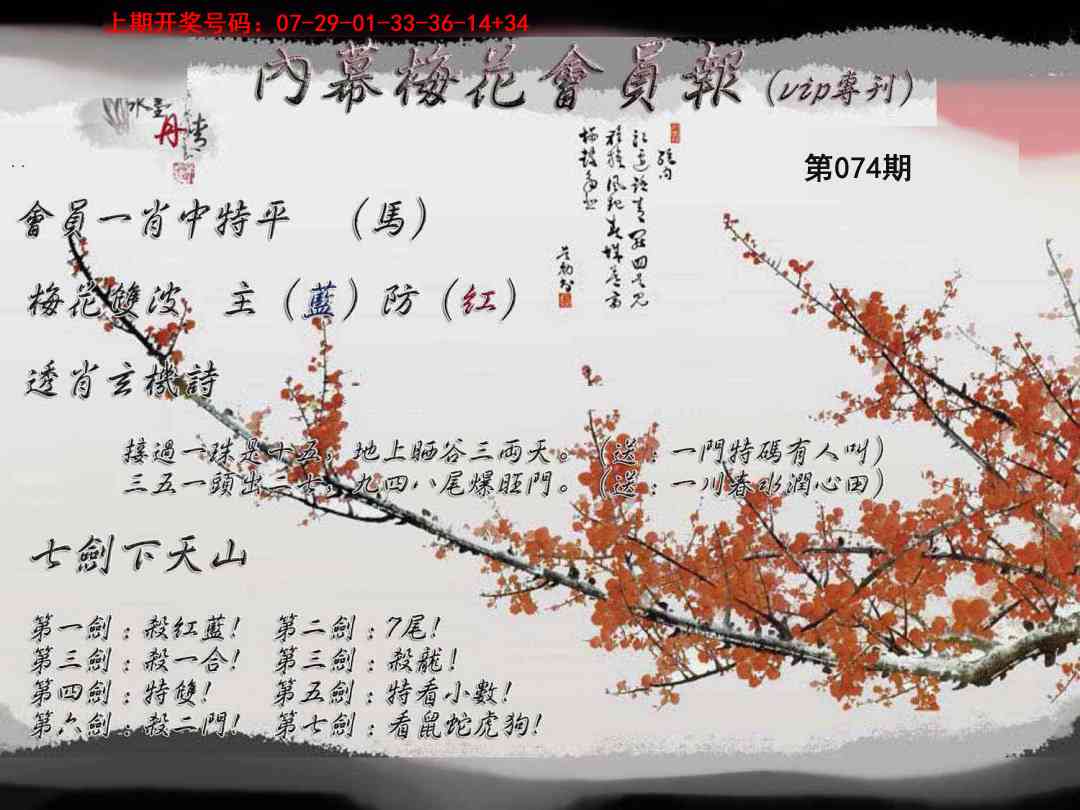 上期开奖号码：07-29-01-33-36-14+34
內幕梅花會員報（vip專刊）
水墨
丹青
第074期
會員一肖中特平　（馬）
梅花雙波　主（藍）防（紅）
透肖玄機詩
接過一珠是十五，地上晒谷三兩天。（送：一門特碼有人叫）
三五一頭出二七，九四八尾爆旺門。（送：一川春水潤心田）
七劍下天山
第一劍：殺紅藍！　第二劍：7尾！
第三劍：殺一合！　第三劍：殺龍！
第四劍：特雙！　第五劍：特看小數！
第六劍：殺二門！　第七劍：看鼠蛇虎狗！